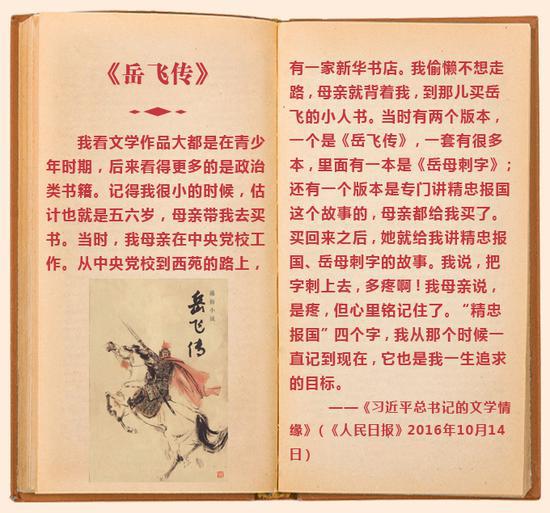 《岳飞传》
我看文学作品大都是在青少
年时期，后来看得更多的是政治
类书籍。记得我很小的时候，估
计也就是五六岁，母亲带我去买
书。当时，我母亲在中央党校工
作。从中央党校到西苑的路上，
岳飞传
有一家新华书店。我偷懒不想走
路，母亲就背着我，到那儿买岳
飞的小人书。当时有两个版本，
一个是《岳飞传》，一套有很多
本，里面有一本是《岳母刺字》；
还有一个版本是专门讲精忠报国
这个故事的，母亲都给我买了。
买回来之后，她就给我讲精忠报
国、岳母刺字的故事。我说，把
字刺上去，多疼啊！我母亲说，
是疼，但心里铭记住了。“精忠
报国”四个字，我从那个时候一
直记到现在，它也是我一生追求
的目标。
——《习近平总书记的文学情
缘》(《人民日报》2016年10月14
日)